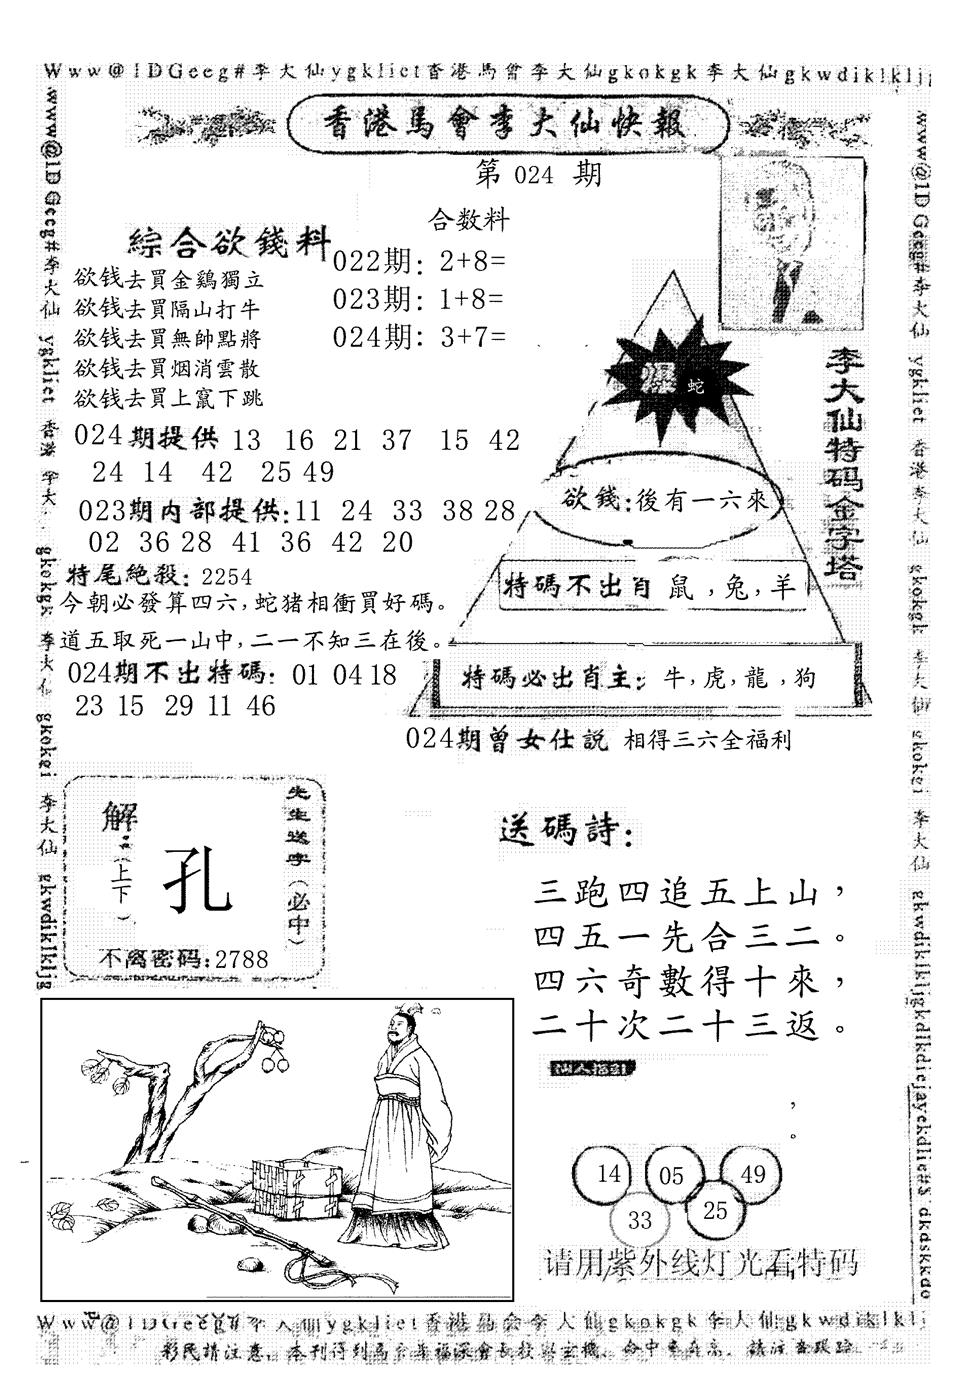 Www@1DGeeg#李大仙ygkliet香港馬會李大仙gkokgk李大仙gkwdiklklj
香港馬會李大仙快報
第 024 期
合数料
綜合欲錢料
022期：2+8=
欲钱去買金鷄獨立
欲钱去買隔山打牛
023期：1+8=
欲钱去買無帥點將
024期：3+7=
欲钱去買烟消雲散
欲钱去買上竄下跳
024期提供 13 16 21 37 15 42
24 14 42 25 49
023期内部提供:11 24 33 38 28
02 36 28 41 36 42 20
特尾絶殺: 2254
今朝必發算四六,蛇猪相衝買好碼。
道五取死一山中,二一不知三在後。
024期不出特碼: 01 04 18
23 15 29 11 46
爆 蛇
欲錢:後有一六來
特碼不出肖 鼠,兔,羊
特碼必出肖主: 牛,虎,龍,狗
李大仙特码金字塔
024期曾女仕説 相得三六全福利
解:(上下)
孔
先生送字(必中)
不离密码:2788
送碼詩:
三跑四追五上山，
四五一先合三二。
四六奇數得十來，
二十次二十三返。
仙人指引
，
。
14 05 49
33 25
请用紫外线灯光看特码
Www@1DGeeg#李大仙ygkliet香港馬会李大仙gkokgk李大仙gkwdiklklj